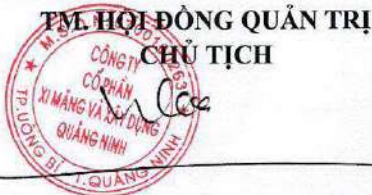 TM. HỘI ĐỒNG QUẢN TRỊ
CHỦ TỊCH
CÔNG TY
CỔ PHẦN
XI MĂNG VÀ XÂY DỰNG
QUẢNG NINH
TP.UÔNG BÍ
T.QUẢNG NINH